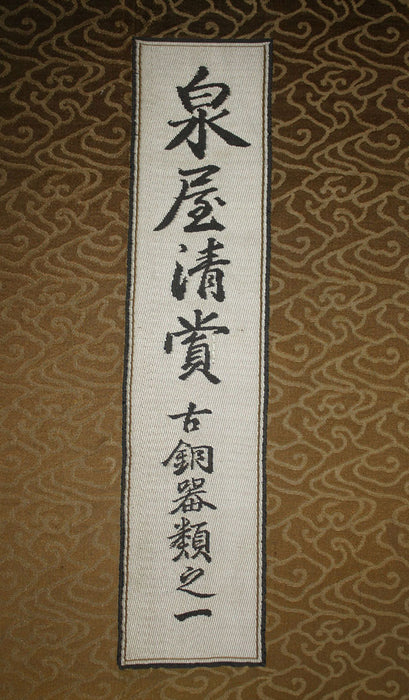 泉屋清賞古銅器類之一